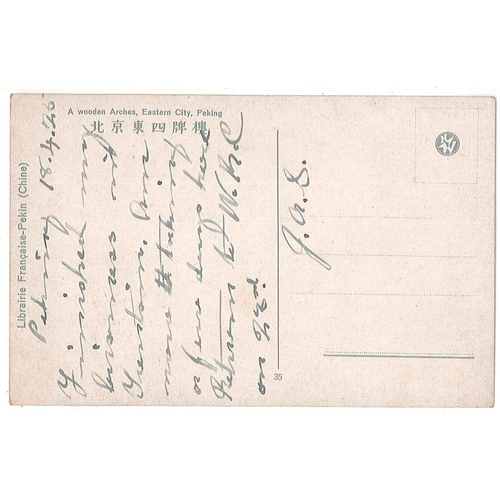 A wooden Arches, Eastern City, Peking
北京東四牌樓
Librairie Française-Pekin (Chine)
Peking 18.4.26
Finished my
business at
Tientsin. Am
now taking
a few days here
Return to W.H.W.
on 22nd
J.A.S.
35